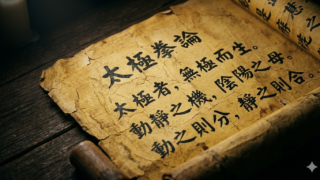 太極拳論
太極者，無極而生。
動靜之機，陰陽之母。
動之則分，靜之則合。